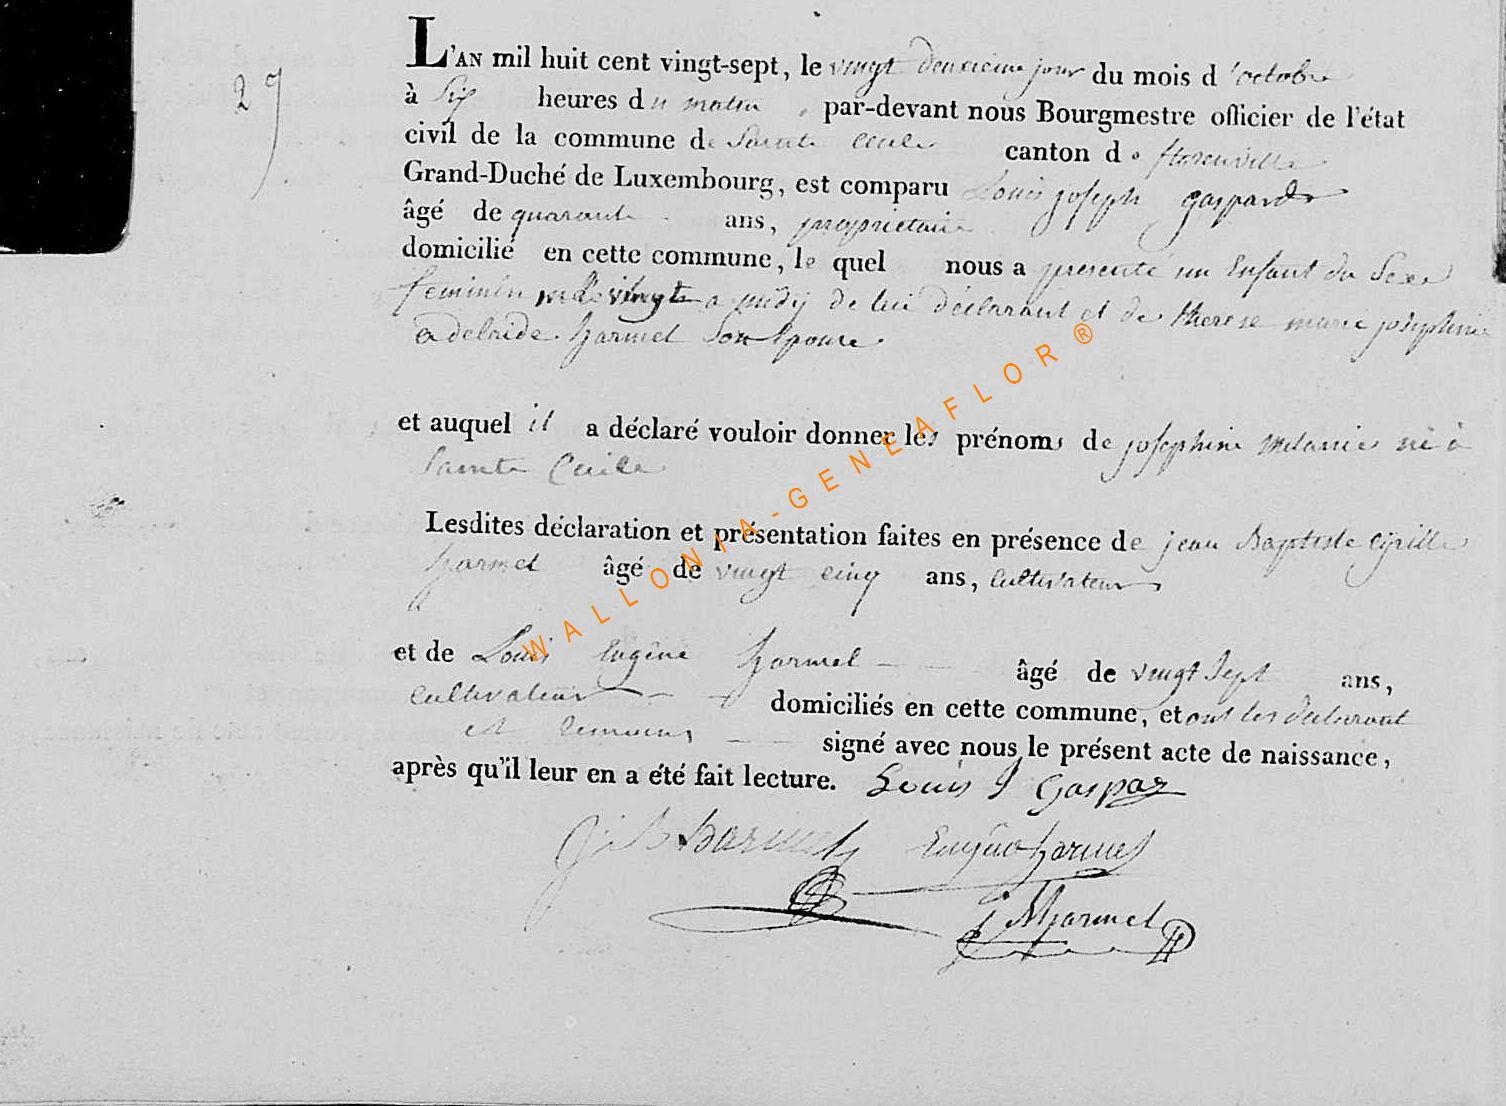 29
L'AN mil huit cent vingt-sept, le vingt deuxieme jour du mois d'octobre
à Six heures du matin, par-devant nous Bourgmestre officier de l'état
civil de la commune de Sainte Cecile canton de florenville
Grand-Duché de Luxembourg, est comparu Louis joseph gaspard
âgé de quarante ans, proprietaire
domicilié en cette commune, le quel nous a presenté un Enfant du Sexe
feminin né le vingt a midÿ de lui déclarant et de therese marie josephine
adelaide harmel Son Epouse
et auquel il a déclaré vouloir donner les prénoms de josephine melanie né à
Sainte Cecile
Lesdites déclaration et présentation faites en présence de jean Baptiste Cyrille
harmel âgé de vingt cinq ans, cultivateur
et de Louis Eugêne harmel âgé de vingt Sept ans,
cultivateur domiciliés en cette commune, et ont les declarant
et temoins signé avec nous le présent acte de naissance,
après qu'il leur en a été fait lecture. Louis J Gaspar
J B harmel Eugêne harmel
harmel
WALLONIA-GENEAFLOR®